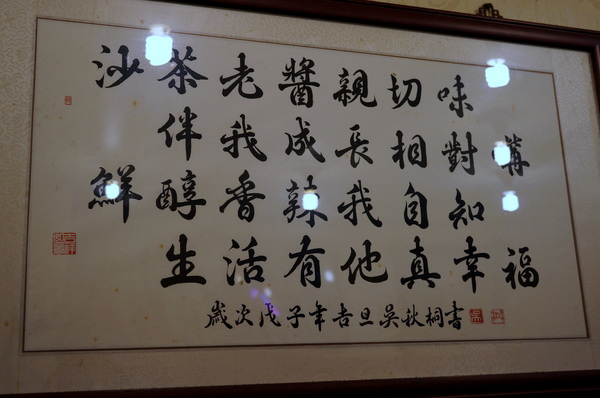 沙茶老醬親切味
伴我成長相對
鮮醇香辣我自知
生活有他真幸福
歲次戊子年吉旦吳秋桐書